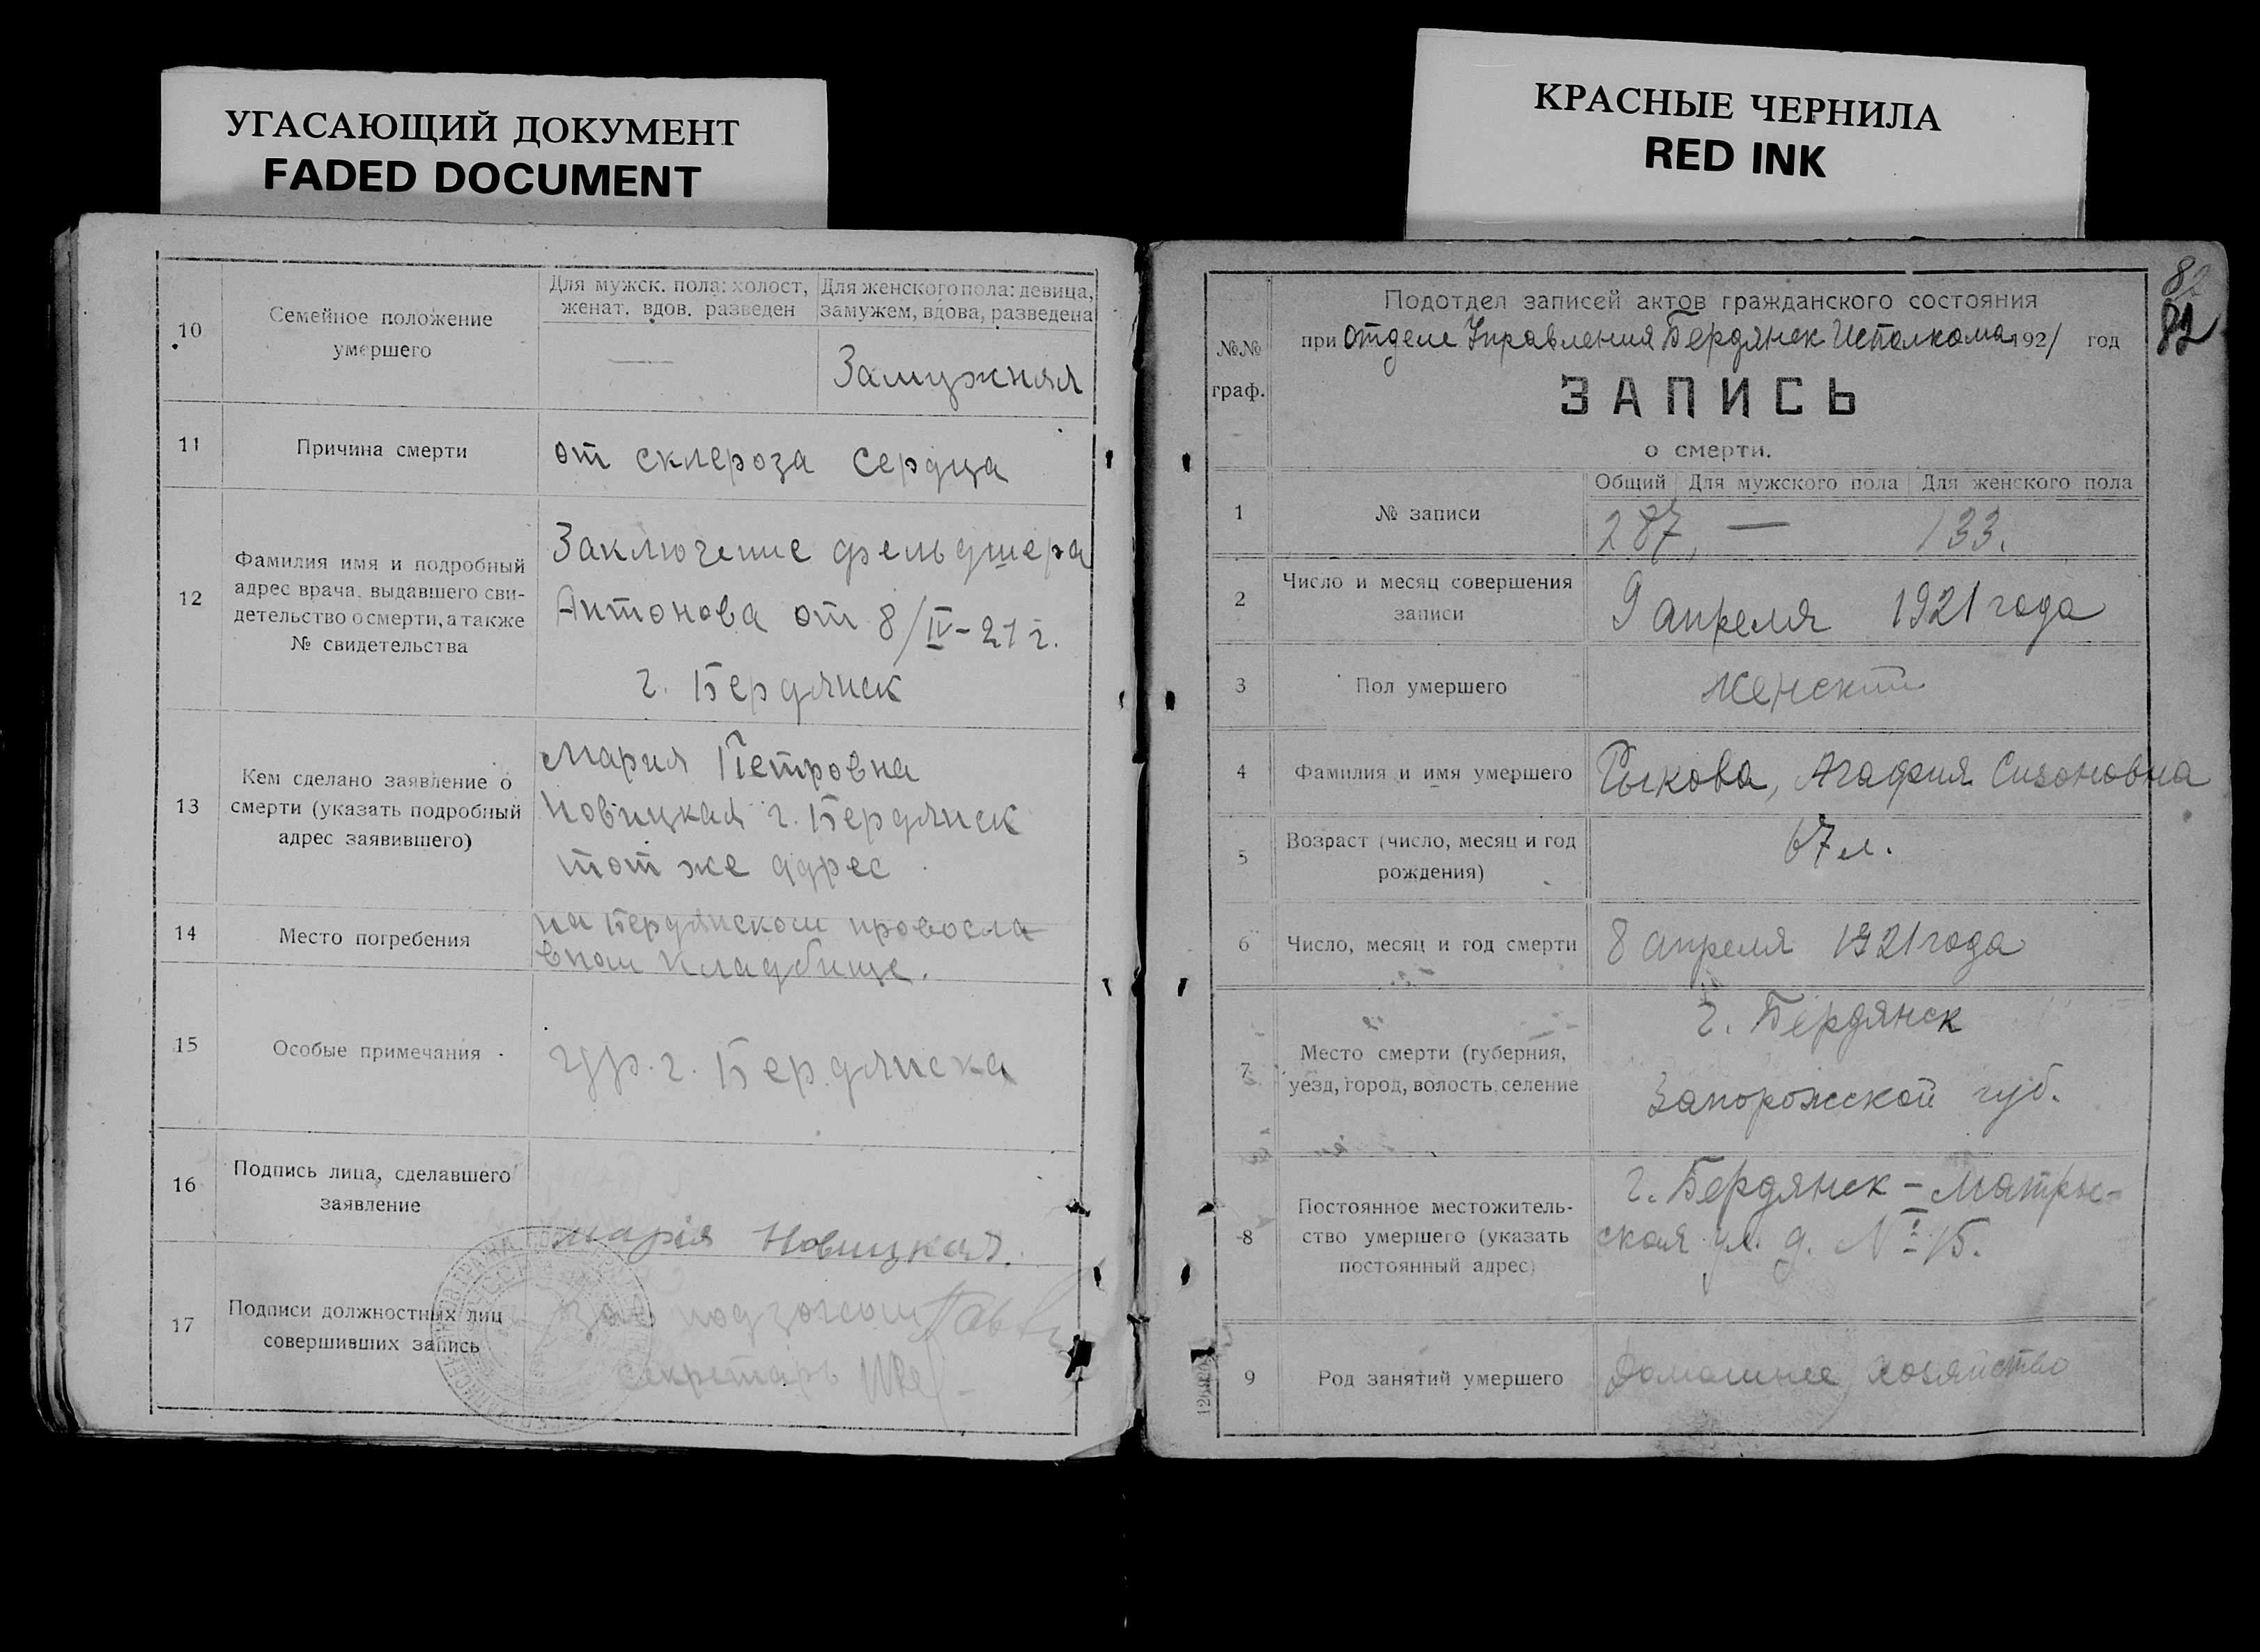 УГАСАЮЩИЙ ДОКУМЕНТ
FADED DOCUMENT
КРАСНЫЕ ЧЕРНИЛА
RED INK
10
Семейное положение
умершего
Для мужск. пола: холост,
женат. вдов. разведен
Для женского пола: девица,
замужем, вдова, разведена
—
Замужняя
11
Причина смерти
от склероза сердца
12
Фамилия имя и подробный
адрес врача, выдавшего сви-
детельство о смерти, а также
№ свидетельства
Заключение фельдшера
Антонова от 8/IV-21 г.
г. Бердянск
13
Кем сделано заявление о
смерти (указать подробный
адрес заявившего)
Мария Петровна
Новицкая г. Бердянск
тот же адрес
14
Место погребения
на Бердянском правосла
вном кладбище.
15
Особые примечания
гр. г. Бердянска
16
Подпись лица, сделавшего
заявление
Марія Новицкая.
17
Подписи должностных лиц
совершивших запись
Зав подзагсом
Секретарь
82
82
№№
граф.
Подотдел записей актов гражданского состояния
при Отделе Управления Бердянск Исполкома 1921 год
ЗАПИСЬ
о смерти.
1
№ записи
Общий
Для мужского пола
Для женского пола
287, — 133.
2
Число и месяц совершения
записи
9 апреля 1921 года
3
Пол умершего
Женский
4
Фамилия и имя умершего
Рыкова, Агафия Сизоновна
5
Возраст (число, месяц и год
рождения)
67 л.
6
Число, месяц и год смерти
8 апреля 1921 года
7
Место смерти (губерния,
уезд, город, волость, селение
г. Бердянск
Запорожской губ.
8
Постоянное местожитель-
ство умершего (указать
постоянный адрес)
г. Бердянск -
ская ул. д. № 15.
9
Род занятий умершего
Домашнее хозяйство